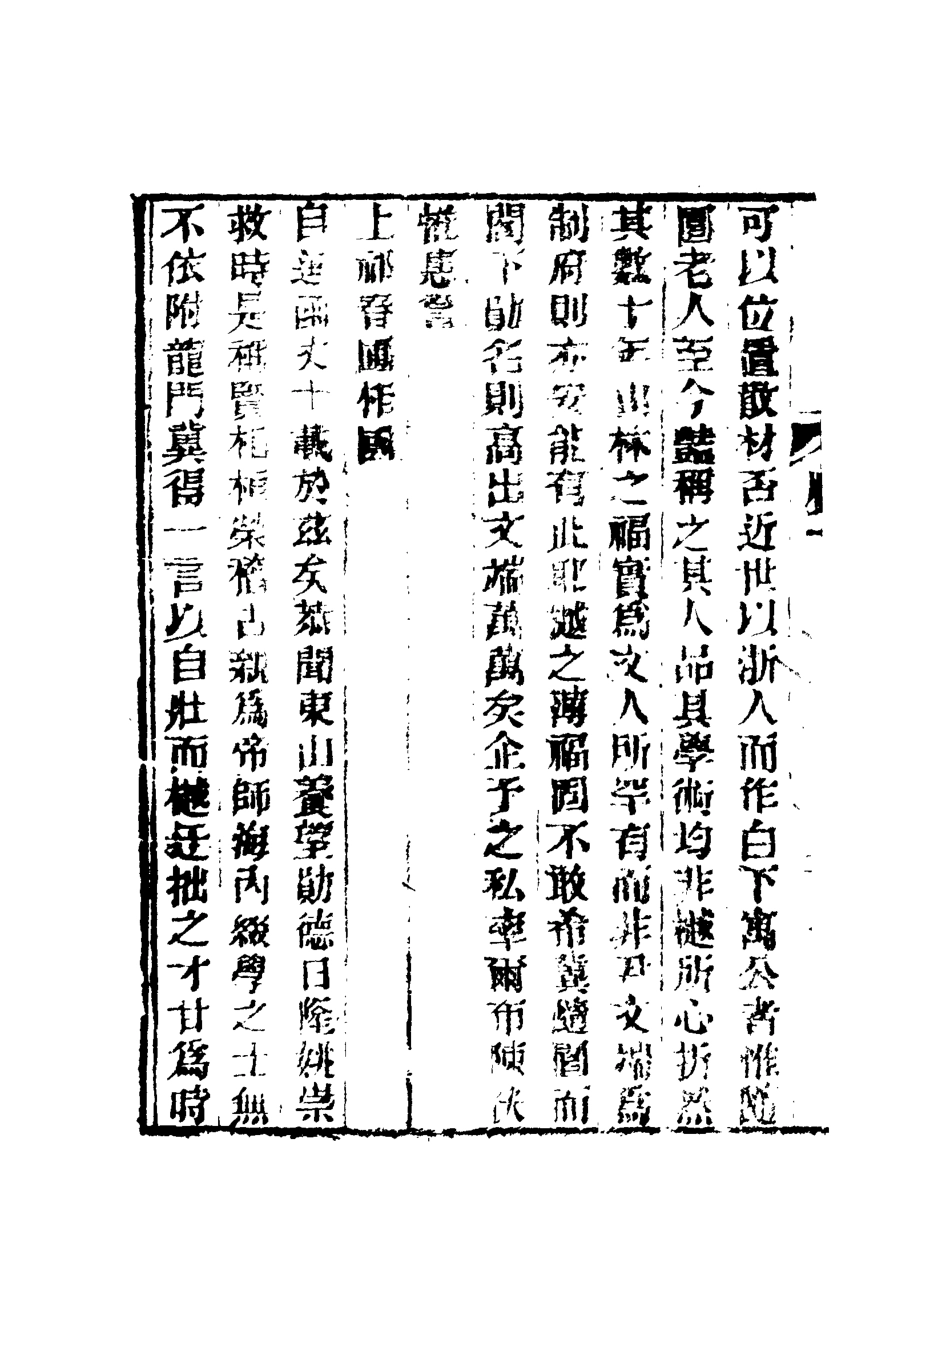 可以位置散材否近世以浙人而作白下寓公者惟隨
園老人至今豔稱之其人品其學術均非樾所心折然
其數十年山林之福實爲文人所罕有而非尹文端爲
制府則亦安能有此耶樾之薄福固不敢希冀隨園而
閣下勛名則高出文端萬萬矣企予之私率爾布陳伏
惟惠詧
上祁春圃相國
自違函丈十載於茲矣恭聞東山養望勛德日隆姚崇
救時是稱賢相桓榮稽古秖爲帝師海內綴學之士無
不依附龍門冀得一言以自壯而樾迂拙之才甘爲時